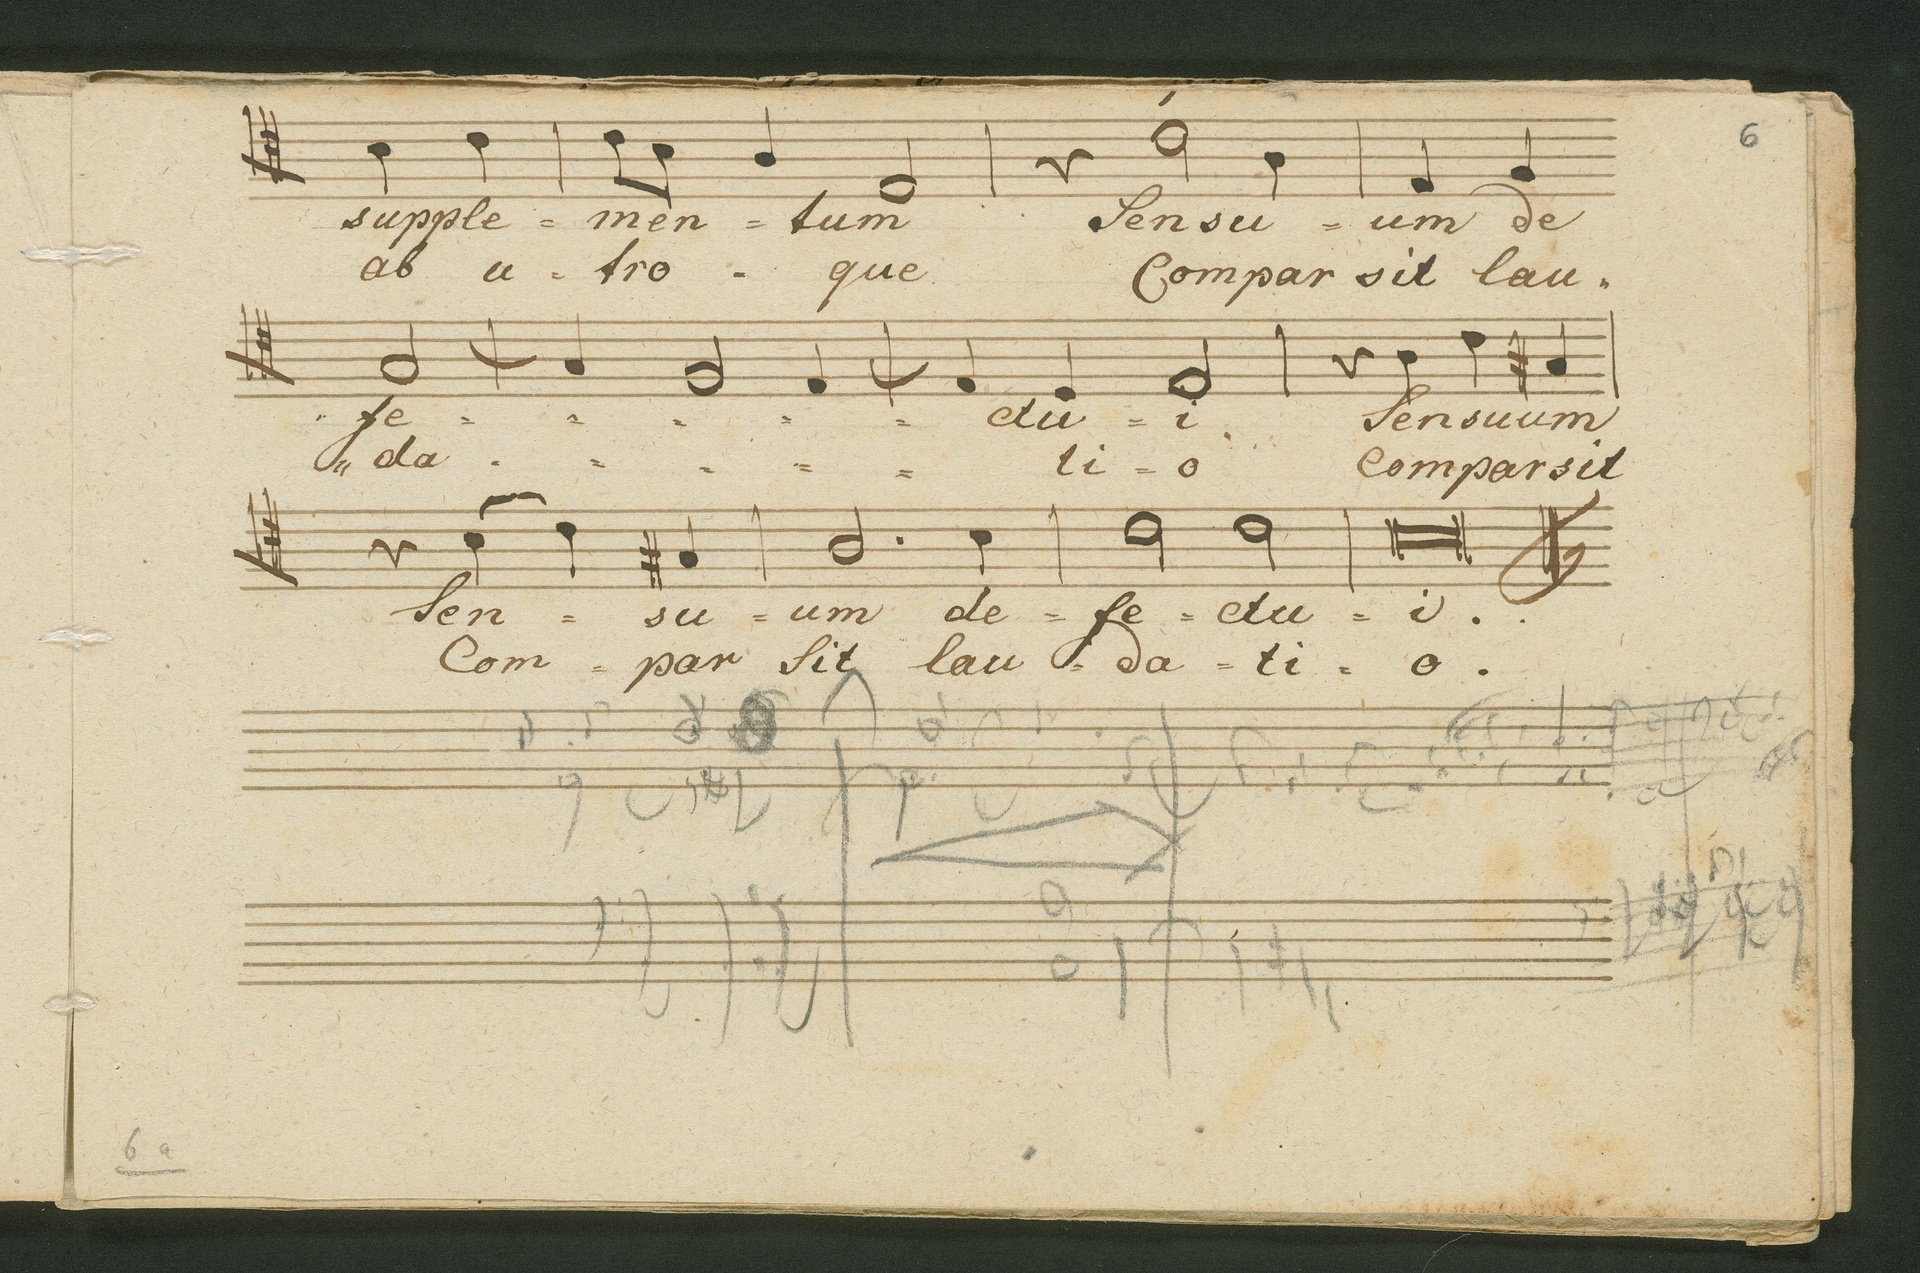 6
supple = men = tum Sensu = um de
ab u = tro - que Compar sit lau =
" fe = = = = = ctu = i. Sensuum
" da - = - = = ti = o Comparsit
Sen = su = um de = fe = ctu = i.
Com = par Sit lau = da = ti = o.
6 a